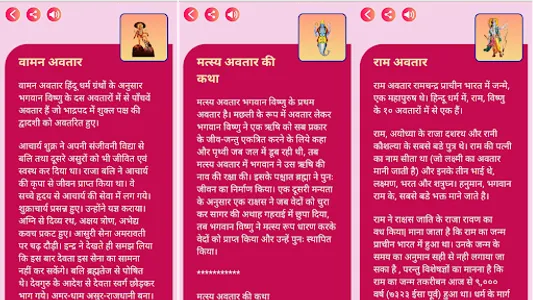 वामन अवतार
वामन अवतार हिंदू धर्म ग्रंथों के अनुसार
भगवान विष्णु के दस अवतारों में से पाँचवें
अवतार हैं जो भाद्रपद में शुक्ल पक्ष की
द्वादशी को अवतरित हुए।
आचार्य शुक्र ने अपनी संजीवनी विद्या से
बलि तथा दूसरे असुरों को भी जीवित एवं
स्वस्थ कर दिया था। राजा बलि ने आचार्य
की कृपा से जीवन प्राप्त किया था। वे
सच्चे हृदय से आचार्य की सेवा में लग गये।
शुक्राचार्य प्रसन्न हुए। उन्होंने यज्ञ कराया।
अग्नि से दिव्य रथ, अक्षय त्रोण, अभेद्य
कवच प्रकट हुए। आसुरी सेना अमरावती
पर चढ़ दौड़ी। इन्द्र ने देखते ही समझ लिया
कि इस बार देवता इस सेना का सामना
नहीं कर सकेंगे। बलि ब्रह्मतेज से पोषित
थे। देवगुरु के आदेश से देवता स्वर्ग छोड़कर
भाग गये। अमर-धाम असुर-राजधानी बना।
मत्स्य अवतार की
कथा
मत्स्य अवतार भगवान विष्णु के प्रथम
अवतार है। मछली के रूप में अवतार लेकर
भगवान विष्णु ने एक ऋषि को सब प्रकार
के जीव-जन्तु एकत्रित करने के लिये कहा
और पृथ्वी जब जल में डूब रही थी, तब
मत्स्य अवतार में भगवान ने उस ऋषि की
नाव की रक्षा की। इसके पश्चात ब्रह्मा ने पुनः
जीवन का निर्माण किया। एक दूसरी मन्यता
के अनुसार एक राक्षस ने जब वेदों को चुरा
कर सागर की अथाह गहराई में छुपा दिया,
तब भगवान विष्णु ने मत्स्य रूप धारण करके
वेदों को प्राप्त किया और उन्हें पुनः स्थापित
किया।
***********
मत्स्य अवतार की कथा
राम अवतार
राम अवतार रामचन्द्र प्राचीन भारत में जन्मे,
एक महापुरुष थे। हिन्दू धर्म में, राम, विष्णु
के १० अवतारों में से एक हैं।
राम, अयोध्या के राजा दशरथ और रानी
कौशल्या के सबसे बडे पुत्र थे। राम की पत्नी
का नाम सीता था (जो लक्ष्मी का अवतार
मानी जाती है) और इनके तीन भाई थे,
लक्ष्मण, भरत और शत्रुघ्न। हनुमान, भगवान
राम के, सबसे बडे भक्त माने जाते है।
राम ने राक्षस जाति के राजा रावण का
वध किया| माना जाता है कि राम का जन्म
प्राचीन भारत में हुआ था। उनके जन्म के
समय का अनुमान सही से नही लगाया जा
सका है , परन्तु विशेषज्ञों का मानना है कि
राम का जन्म तकरीबन आज से ९,०००
वर्ष (७३२३ ईसा पूर्व) हुआ था। धर्म के मार्ग